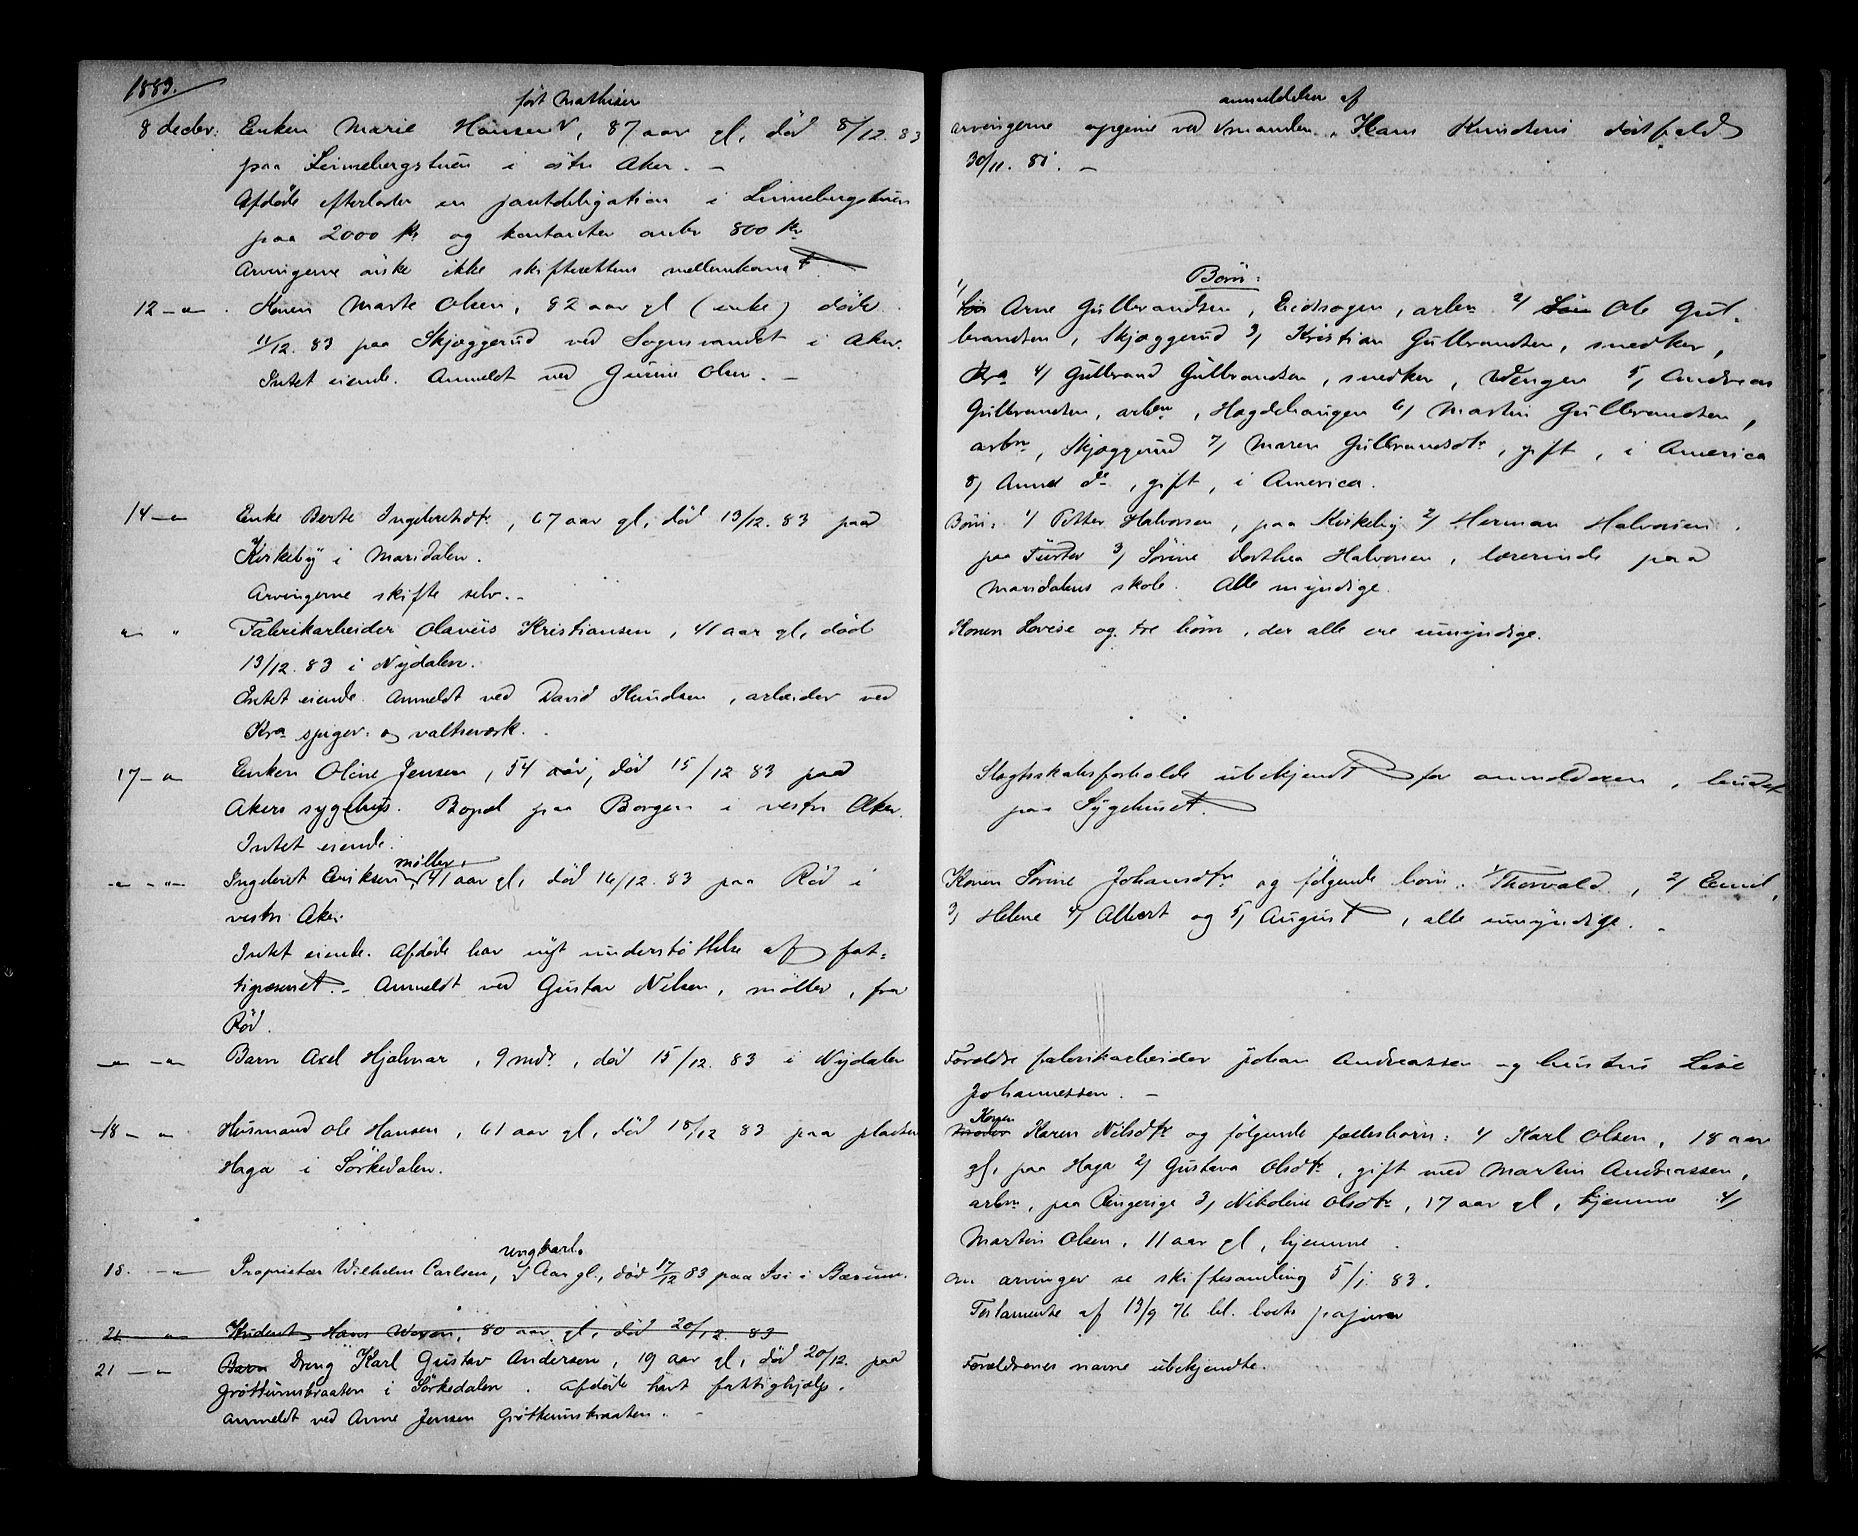 1883.
født Mathisen
8 decbr: Enken Marie Hansen, 87 aar gl, død 8/12. 83
paa Linnebergstuen i østre Aker. –
Afdøde efterlader en pantobligation i Linnebergstuen
paa 2000 kr og kontanter omtr 800 kr
Arvingerne ønske ikke skifterettens mellemkomst.
12 – " – . Konen Marte Olsen, 82 aar gl (enke) døde
11/12. 83 paa Skjæggerud ved Sognsvandet i Aker.
Intet eiende. Anmeldt ved Gunne Olsen. –
14 – " – Enke Berte Ingebretsdtr, 67 aar gl, død 13/12. 83 paa
Kirkeby i Maridalen.
Arvingerne skifte selv. –
" – " Fabrikarbeider Olavus Kristiansen, 41 aar gl, død
13/12. 83 i Nydalen.
Intet eiende. Anmeldt ved David Knudsen, arbeider ved
Kra spiger- og valtseværk.
17 – " Enken Oline Jensen, 54 aar, død 15/12 83 paa
Akers sygehus. Bopæl paa Borgen i vestre Aker.
Intet eiende.
møller,
– " – " – Ingebret Eriksen, 41 aar gl, død 16/12. 83 paa Rød i
vestre Aker.
Intet eiende. Afdøde har nydt understøttelse af fat-
tigvæsenet. – Anmeldt ved Gustav Nilsen, møller, fra
Rød.
– " – – " Barn Axel Hjalmar, 9 mdr, død 15/12. 83 i Nydalen
18 – " Husmand Ole Hansen, 61 aar gl, død 15/12 83 paa pladsen
Haga i Sørkedalen.
ungkarl.
18. – " – Proprietær Wilhelm Carlsen, Aar gl., død 17/12 83 paa Ivi i Bærum.
21 – " – Student Hans Woxen, 80 aar gl, død 20/12. 83
21 – " – Barn Dreng Karl Gustav Andersen, 19 aar gl, død 20/12. paa
Grøttumsbraaten i Sørkedalen. Afdøde havt fattighjælp.
Anmeldt ved Anne Jensen Grøttumsbraaten. –
anmeldelsen af
arvingerne opgivne ved manden, Hans Knudsens dødsfald
30/11. 81. –
Børn:
1/ Søn Arne Gulbrandsen, Eidsvogen, arbm. 2/ Søn Ole Gul-
brandsen, Skjæggerud 3/ Kristian Gulbrandsen, snedker,
Kra 4/ Gulbrand Gulbrandsen, snedker, Vengen 5, Andreas
Gulbrandsen, arbm, Hagdehaugen 6/ Martin Gulbrandsen,
arbm, Skjæggerud 7/ Maren Gulbrandsdtr, gift, i America
8, Anne do, gift, i America.
Børn: 1/ Petter Halvorsen, paa Kirkeby 2/ Herman Halvorsen
paa Turter 3/ Sørine Dorthea Halvorsen, lærerinde paa
Maridalens skole. Alle myndige.
Konen Lovise og tre børn, der alle ere umyndige.
Slægtskabsforholde ubekjendt for anmelderen, budet
paa Sygehuset.
Konen Sørine Johansdtr og følgende børn: 1/ Thorvald, 2/ Emil,
3, Helene 4/ Albert og 5, August, alle umyndige. –
Forældre fabrikarbeider Johan Andreassen og hustru Lise
Johannessen. –
Konen
Moder Karen Nilsdtr og følgende fællesbørn: 1/ Karl Olsen, 18 aar
gl, paa Haga 2/ Gustava Olsdtr, gift med Martin Andreassen,
arbm, paa Ringerige 3, Nikoline Olsdtr, 17 aar gl, hjemme 4/
Martin Olsen, 11 aar gl, hjemme.
Om arvinger se skiftesamling 5/1. 83.
Testamente af 13/9 76 bl. boets papirer
Forældrenes navne ubekjendte.